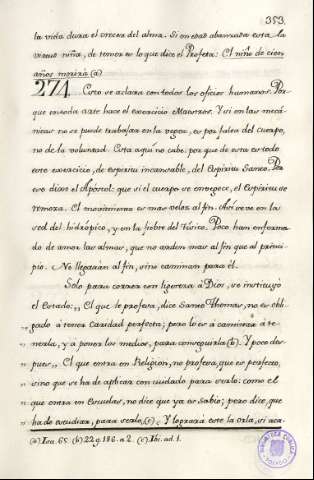 353.
la vida dura el crecer del alma. Si en edad abanzada esta la
virtud niña, de temer es lo que dice el Profeta: El niño de cien
años morirá (a)
274 Esto se aclara con todos los oficios humanos. Por
que en toda arte hace el exercicio Maestros. Y si en las mecá-
nicas no se puede trabajar en la vejez, es por falta del cuerpo,
no de la voluntad. Esta aquí no cabe: por que de esta es todo
este exercicio, de espiritu incansable, del Espiritu Santo. Por
eso dixo el Apóstol: que si el cuerpo se envegece, el Espiritu se
remoza. El movimiento es mas veloz al fin. Así se ve en la
sed del hidrópico, y en la fiebre del Tísico. Poco han enferma-
do de amor las almas, que no anden mas al fin que al princi-
pio. No llegarán al fin, sino caminan para él.
Solo para correr con ligereza á Dios, se instituyó
el Estado: „ El que le profesa, dice Santo Thomas, no es obli-
„ gado á tener Caridad perfecta; pero lo es á caminar á te-
„ nerla, y á poner los medios, para conseguirla (b). Y poco des-
„ pues „ El que entra en Religion, no profesa, que es perfecto,
„ sino que se ha de aplicar con cuidado para serlo: como el
„ que entra en Escuelas, no dice que ya es sabio; pero dice, que
„ ha de estudiar, para serlo, (c). Y logrará este la orla, si aca-
(a) Isa. 65. (b) 22. q. 186. a. 2. (c) Ibi. ad. 1.
BIBLIOTECA PUBLICA
TOLEDO